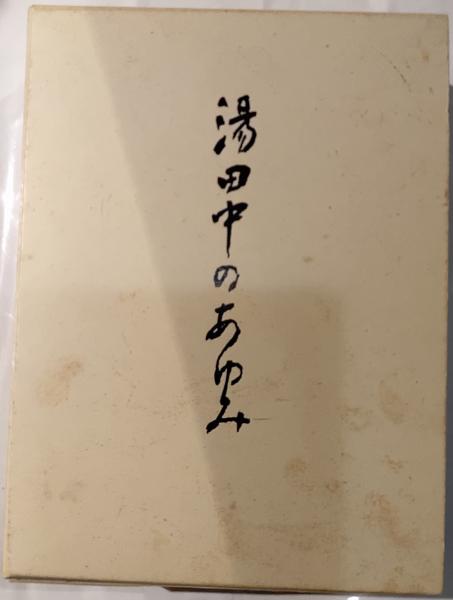 湯田中のあゆみ